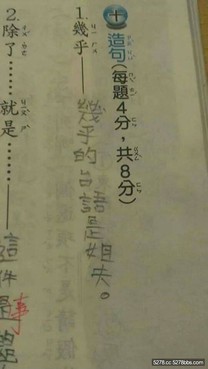 十 造句(每題4分，共8分)
1. 幾乎
幾乎的台語是姐夫。
2. 除了……就是……
這件事是
5278.cc 5278bbs.com